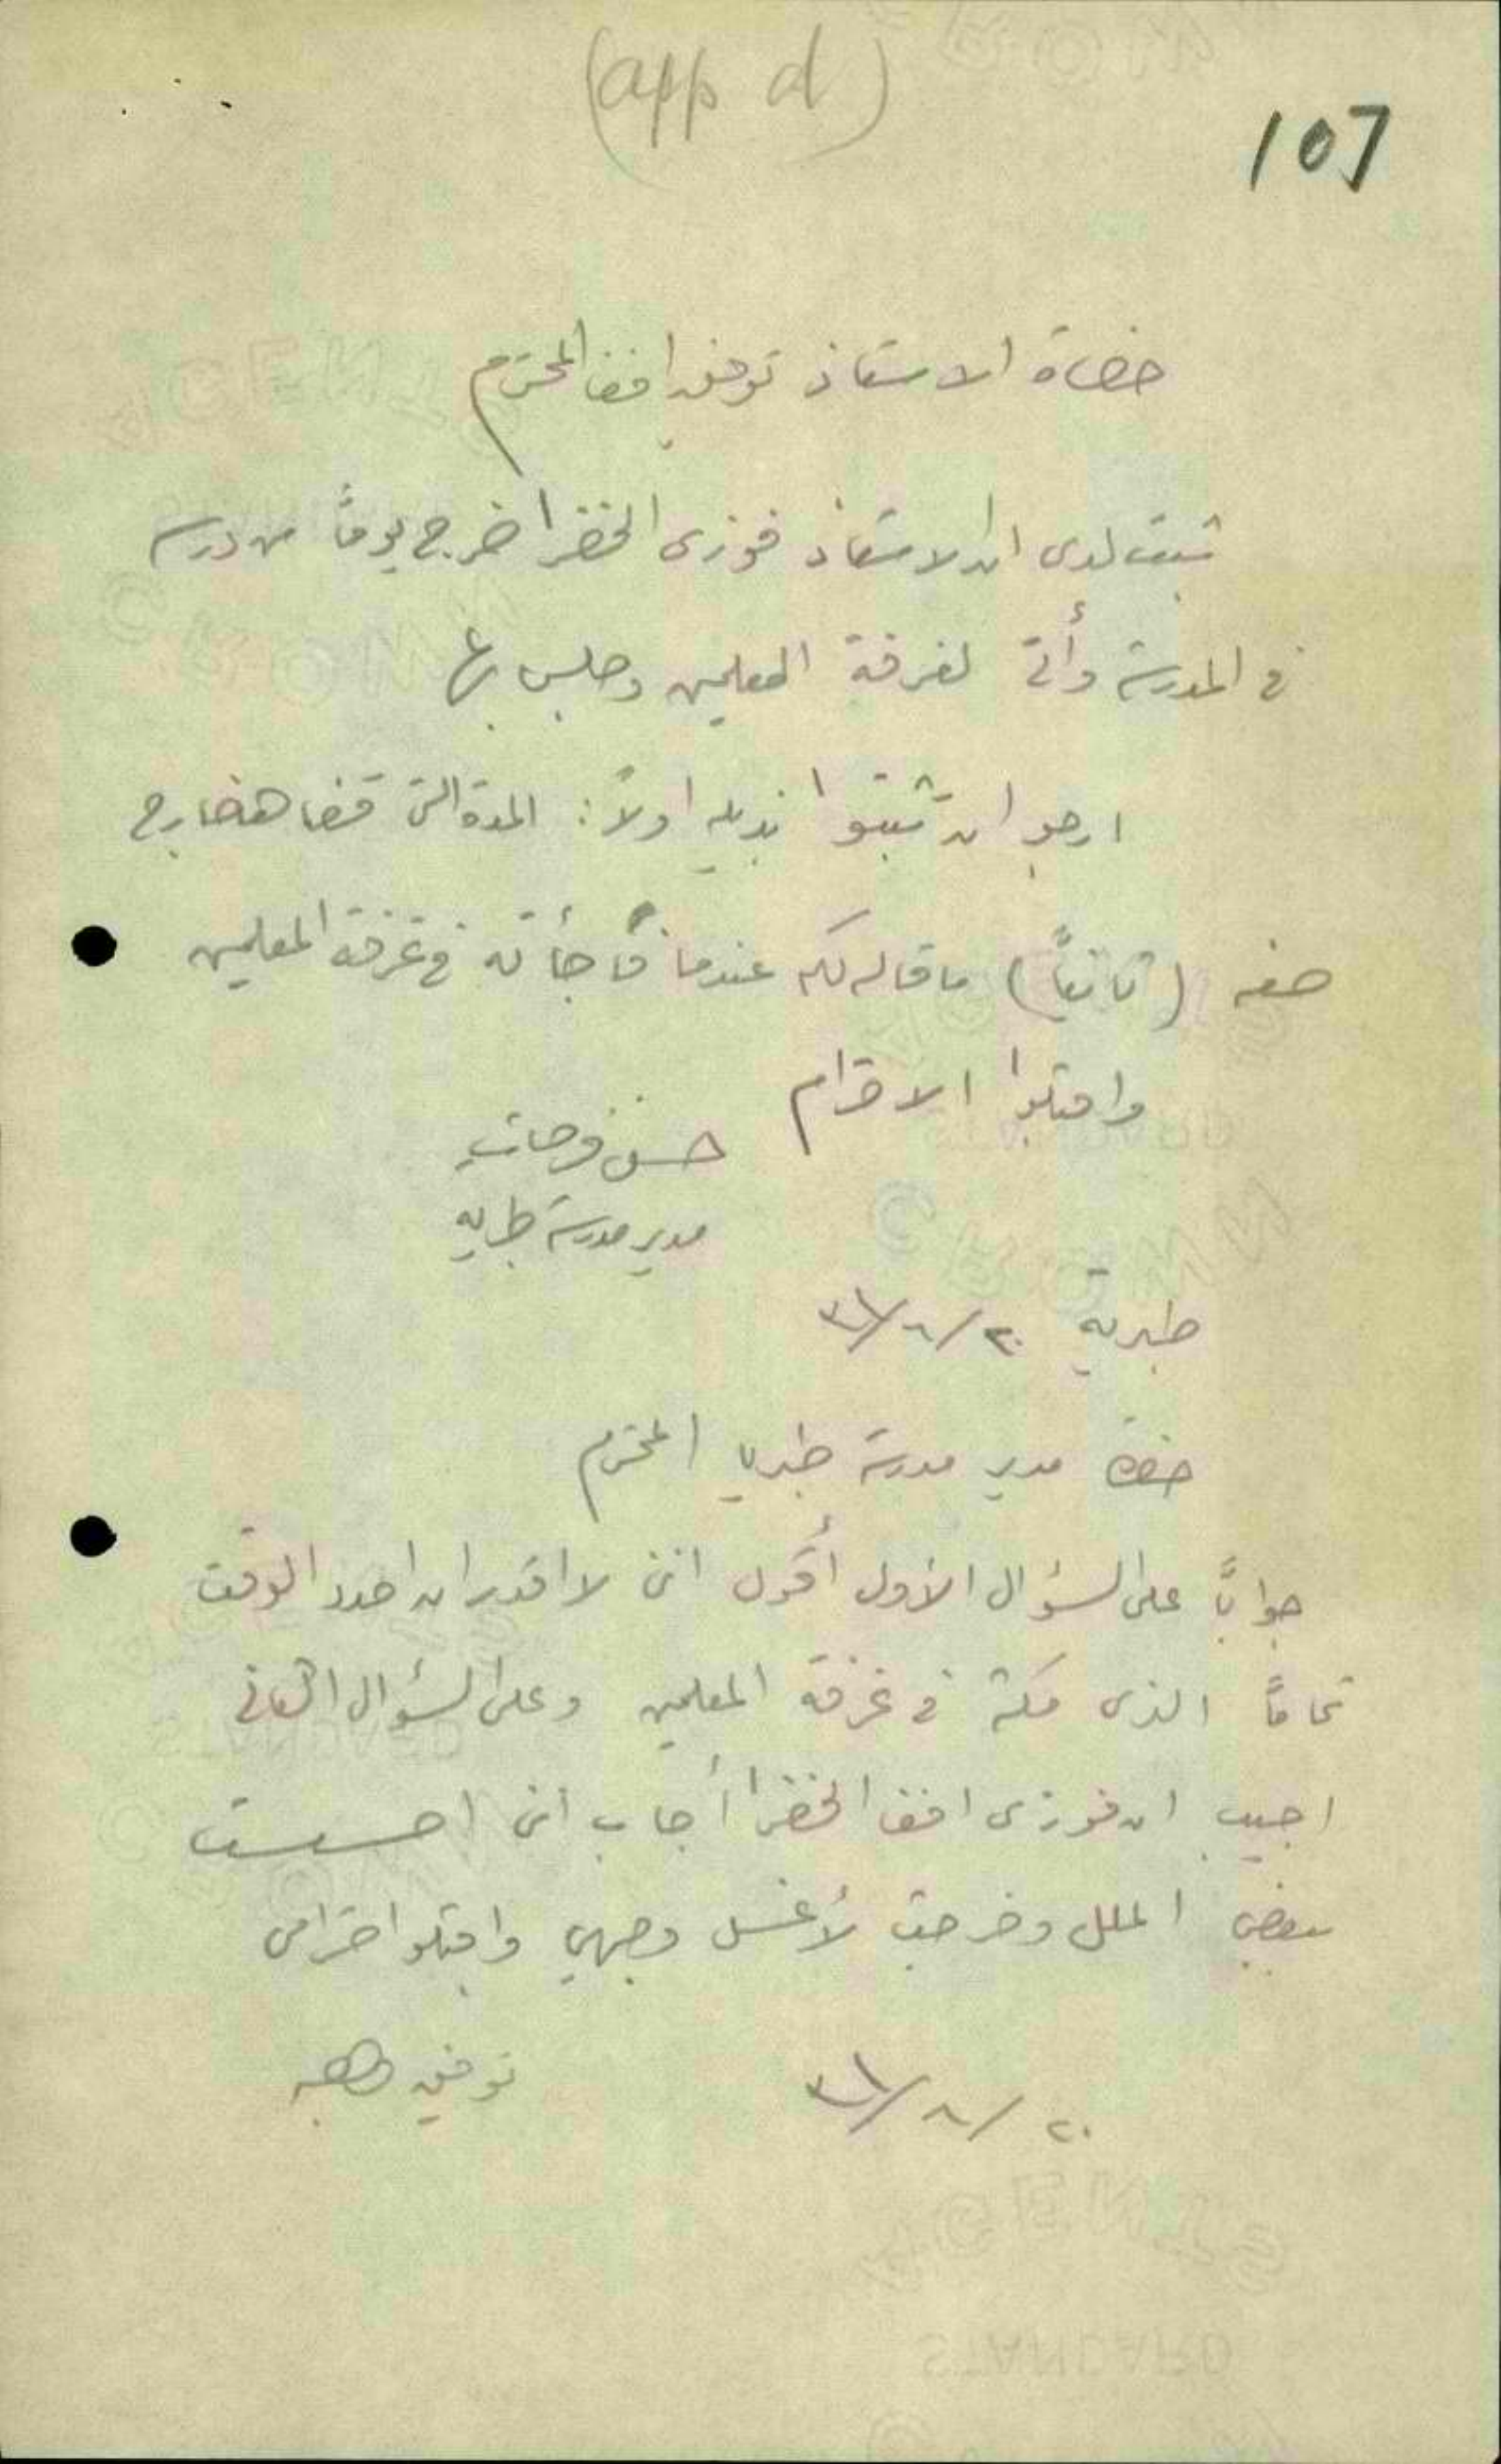 (app d)
107
حضرة الاستاذ توفيق افندي المحترم
ثبت لدى ان الاستاذ فوزى الخضرا خرج يوماً من درسه
في المدرسة وأتى لغرفة المعلمين وجلس بها
ارجوا ان تثبتوا بذيله اولاً: المدة التى قضاها خارج
صفه (ثانياً) ما قاله لكم عندما فاجأته في غرفة المعلمين
واقبلوا الاحترام
حسن فرحات
مدير مدرسة طبريه
طبرية
حضرة مدير مدرسة طبريا المحترم
جواباً على السؤال الأول أقول انني لا اقدر ان احدد الوقت
تماماً الذى مكثه في غرفة المعلمين وعلى السؤال الثاني
اجيب ان فوزى افندي الخضرا أجاب انى احسست
ببعض الملل وخرجت لأغسل وجهي واقبلوا احترامى
توفيق